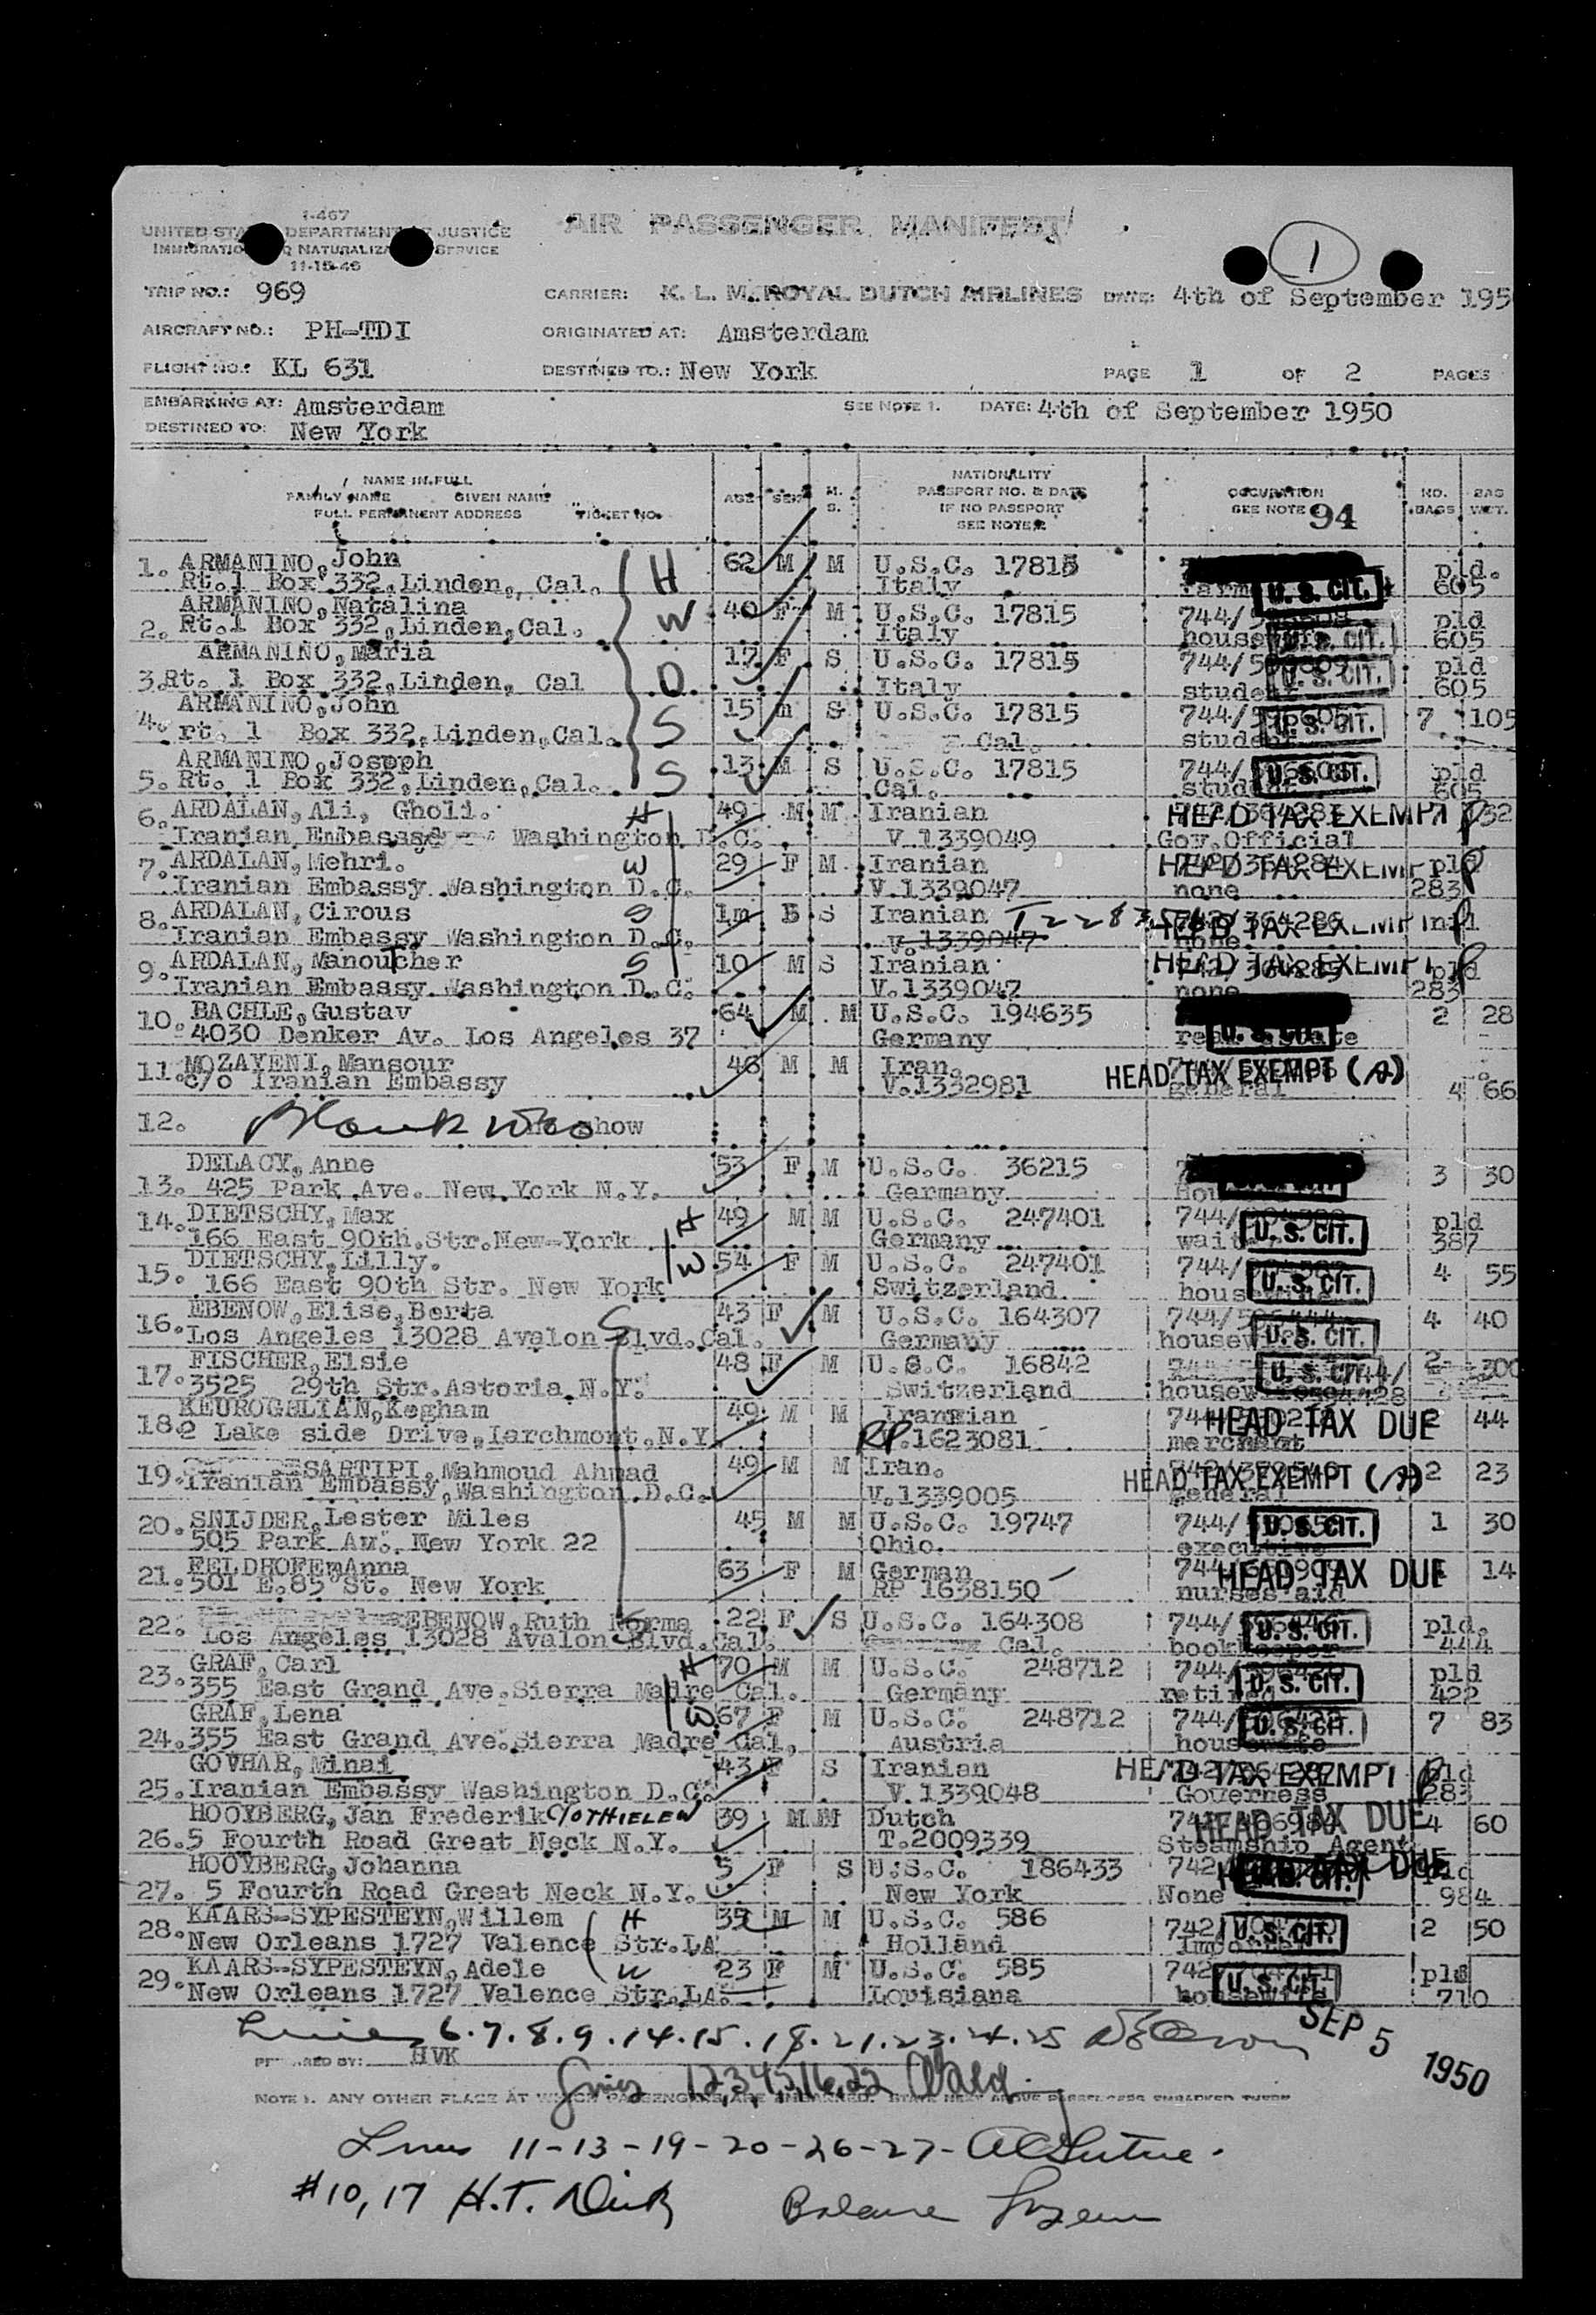 I-467
UNITED STATES DEPARTMENT OF JUSTICE
IMMIGRATION AND NATURALIZATION SERVICE
11-15-46
AIR PASSENGER MANIFEST
1
TRIP NO.: 969 CARRIER: K. L. M. ROYAL DUTCH AIRLINES DATE: 4th of September 195
AIRCRAFT NO.: PH-TDI ORIGINATED AT: Amsterdam
FLIGHT NO.: KL 631 DESTINED TO.: New York PAGE 1 OF 2 PAGES
EMBARKING AT: Amsterdam SEE NOTE 1. DATE: 4th of September 1950
DESTINED TO: New York
NAME IN FULL
FAMILY NAME GIVEN NAME
FULL PERMANENT ADDRESS TICKET NO.
AGE SEX M. S.
NATIONALITY
PASSPORT NO. & DATE
IF NO PASSPORT
SEE NOTE 2.
OCCUPATION
SEE NOTE 94
NO. BAGS BAG WGT.
1. ARMANINO, John H 62 M M U.S.C. 17815 pld.
Rt.1 Box 332, Linden, Cal. Italy U. S. CIT. 605
ARMANINO, Natalina W 40 F M U.S.C. 17815 744/ pld
2. Rt.1 Box 332, Linden, Cal. Italy U. S. CIT. 605
ARMANINO, Maria 17 F S U.S.C. 17815 744/ pld
3. Rt. 1 Box 332, Linden, Cal D. Italy student U. S. CIT. 605
ARMANINO, John 15 m S U.S.C. 17815 744/ U. S. CIT. 7 105
4. rt. 1 Box 332, Linden, Cal. S Cal. student
ARMANINO, Joseph 13 M S U.S.C. 17815 744/ U. S. CIT. pld
5. Rt. 1 Box 332, Linden, Cal. S Cal. student 605
6. ARDALAN, Ali, Gholi. H 49 M M Iranian HEAD TAX EXEMPT
Iranian Embassy Washington D.C. V.1339049 Gov.Official
7. ARDALAN, Mehri. W 29 F M Iranian HEAD TAX EXEMPT pld
Iranian Embassy Washington D.C. V.1339047 none 283
8. ARDALAN, Cirous S 1m B S Iranian HEAD TAX EXEMPT
Iranian Embassy Washington D.C. V.1339047 none
9. ARDALAN, Manoutcher S 10 M S Iranian HEAD TAX EXEMPT pld
Iranian Embassy Washington D.C. V.1339047 none 283
10. BACHLE, Gustav 64 M M U.S.C. 194635 2 28
4030 Denker Av. Los Angeles 37 Germany real estate U. S. CIT.
11. MOZAYENI, Mansour 46 M M Iran. HEAD TAX EXEMPT (A)
c/o Iranian Embassy V.1332981 general 4 66
12. show
DELACY, Anne 53 F M U.S.C. 36215 3 30
13. 425 Park Ave. New York N.Y. Germany
14. DIETSCHY, Max H 49 M M U.S.C. 247401 744/ U. S. CIT. pld
166 East 90th.Str.New-York Germany 387
DIETSCHY, Lilly. W 54 F M U.S.C. 247401 744/ U. S. CIT. 4 55
15. 166 East 90th Str. New York Switzerland
16. EBENOW, Elise, Berta 43 F M U.S.C. 164307 744/ 4 40
Los Angeles 13028 Avalon Blvd.Cal. Germany U. S. CIT.
FISCHER, Elsie 48 F M U.S.C. 16842 U. S. CIT. 2
17. 3525 29th Str.Astoria N.Y. Switzerland
KEUROGELIAN, Kegham 49 M M HEAD TAX DUE 2 44
18. 2 Lake side Drive, Larchmont, N.Y. RP.1623081 merchant
19. SARTIPI, Mahmoud Ahmad 49 M M Iran. HEAD TAX EXEMPT (A) 2 23
Iranian Embassy, Washington D.C. V.1339005 general
20. SNIJDER, Lester Miles 45 M M U.S.C. 19747 744/ U. S. CIT. 1 30
505 Park Av. New York 22 Ohio. executive
21. FELDHOFER, Anna 63 F M German HEAD TAX DUE 14
501 E.85 St. New York RP 1638150 nurses aid
22. EBENOW, Ruth Norma 22 F S U.S.C. 164308 744/ U. S. CIT. pld.
Los Angeles 13028 Avalon Blvd.Cal. Cal. bookkeeper 444
23. GRAF, Carl H 70 M M U.S.C. 248712 744/ U. S. CIT. pld
355 East Grand Ave.Sierra Madre Cal. Germany retired 422
GRAF, Lena W 67 F M U.S.C. 248712 744/ U. S. CIT. 7 83
24. 355 East Grand Ave.Sierra Madre Cal. Austria housewife
GOVHAR, Minai 43 F S Iranian HEAD TAX EXEMPT pld
25. Iranian Embassy Washington D.C. V.1339048 Governess 283
HOOYBERG, Jan Frederik 39 M M Dutch HEAD TAX DUE 4 60
26. 5 Fourth Road Great Neck N.Y. T.2009339 Steamship Agent
HOOYBERG, Johanna 5 F S U.S.C. 186433 742 pld
27. 5 Fourth Road Great Neck N.Y. New York None 984
28. KAARS-SYPESTEYN, Willem H 35 M M U.S.C. 586 742/ U. S. CIT. 2 50
New Orleans 1727 Valence Str.LA Holland
29. KAARS-SYPESTEYN, Adele W 23 F M U.S.C. 585 742 U. S. CIT. pld
New Orleans 1727 Valence Str.LA. Louisiana housewife 710
6.7.8.9.14.15.18.21.23.24.25
SEP 5 1950
PREPARED BY: HVK
1,2,3,4,5,16,22
NOTE 1. ANY OTHER PLACE AT WHICH PASSENGERS ARE EMBARKED.
Lines 11-13-19-20-26-27-
#10, 17 H.T. Balance